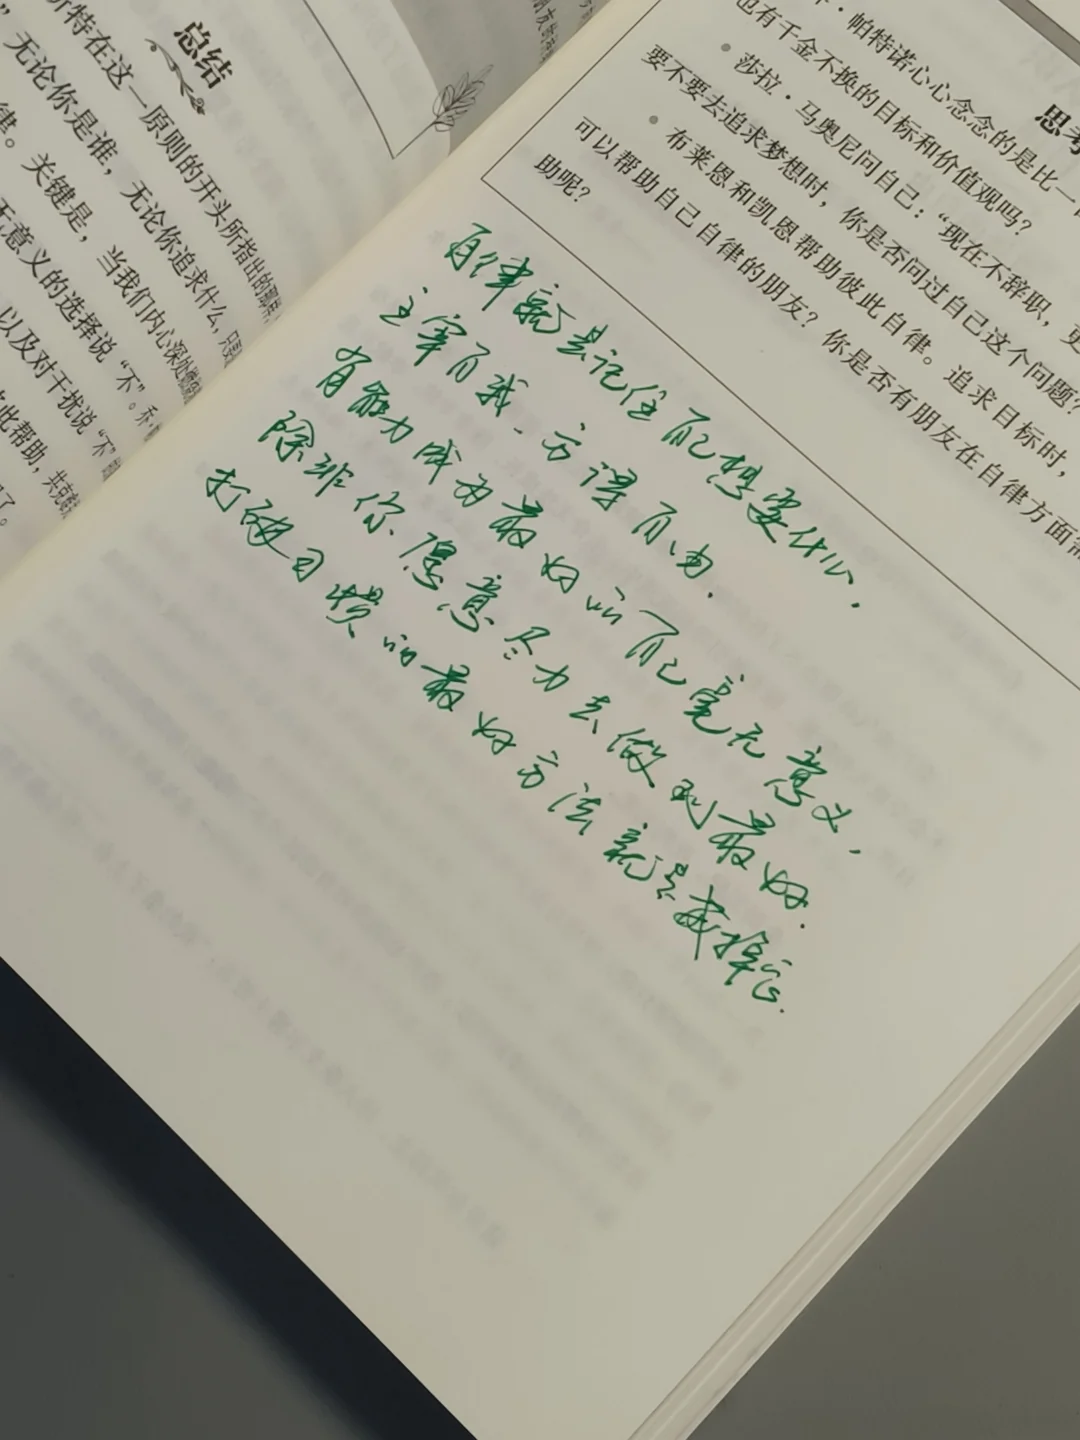 总结
斯特在这一原则的开头所指出的那样
”无论你是谁，无论你追求什么，只要
律。关键是，当我们内心深处
无意义的选择说“不”。乔·
以及对干扰说“不”
此帮助，共克
了。
思考
·帕特诺心心念念的是比一
也有千金不换的目标和价值观吗？
莎拉·马奥尼问自己：“现在不辞职，更
要不要去追求梦想时，你是否问过自己这个问题？
布莱恩和凯恩帮助彼此自律。追求目标时，
可以帮助自己自律的朋友？你是否有朋友在自律方面需
助呢？
自律就是记住自己想要什么．
主宰自我、方得自由．
有能力成为最好的自己毫无意义，
除非你愿意尽力去做到最好．
打破习惯的最好方法就是戒掉它．